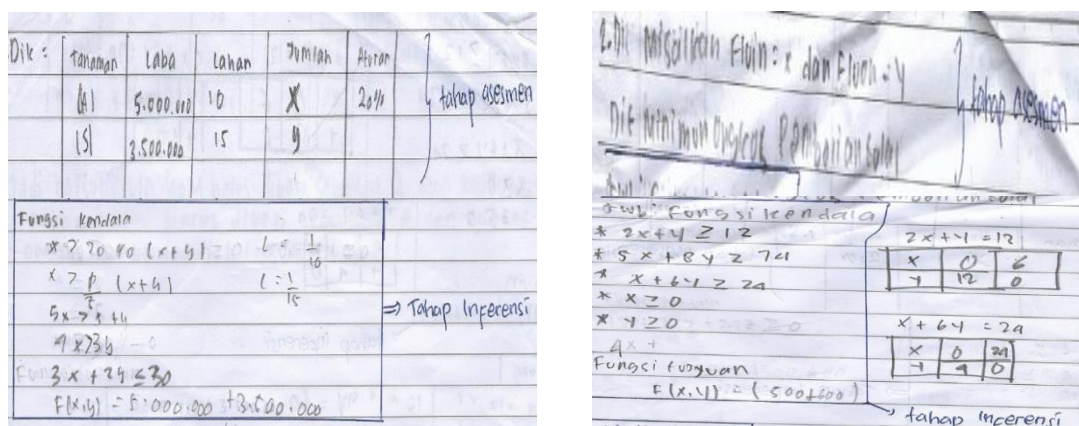 Dik :
Tanaman Laba Lahan Jumlah Aturan
(A) 5.000.000 10 X 20%
(S) 3.500.000 15 y
tahap asesmen
Fungsi kendala
x ≥ 20% (x+y) L = 1/10
L = 1/15
3x + 2y ≤ 30
F(x,y) = 5.000.000 + 3.500.000
⇒ Tahap Inferensi
2. Dik misalkan Fluin = x dan Fluon = y
Dit Minimum Ongkos Pembelian
tahap asesmen
Jwb: Fungsi kendala
* 2x+y ≥ 12
* 5x+8y ≥ 74
* x+6y ≥ 24
* x ≥ 0
* y ≥ 0
4x +
Fungsi tujuan
F(x,y) = (500+600)
2x+y = 12
x 0 6
y 12 0
x + 6y = 24
x 0 24
y 4 0
tahap inferensi